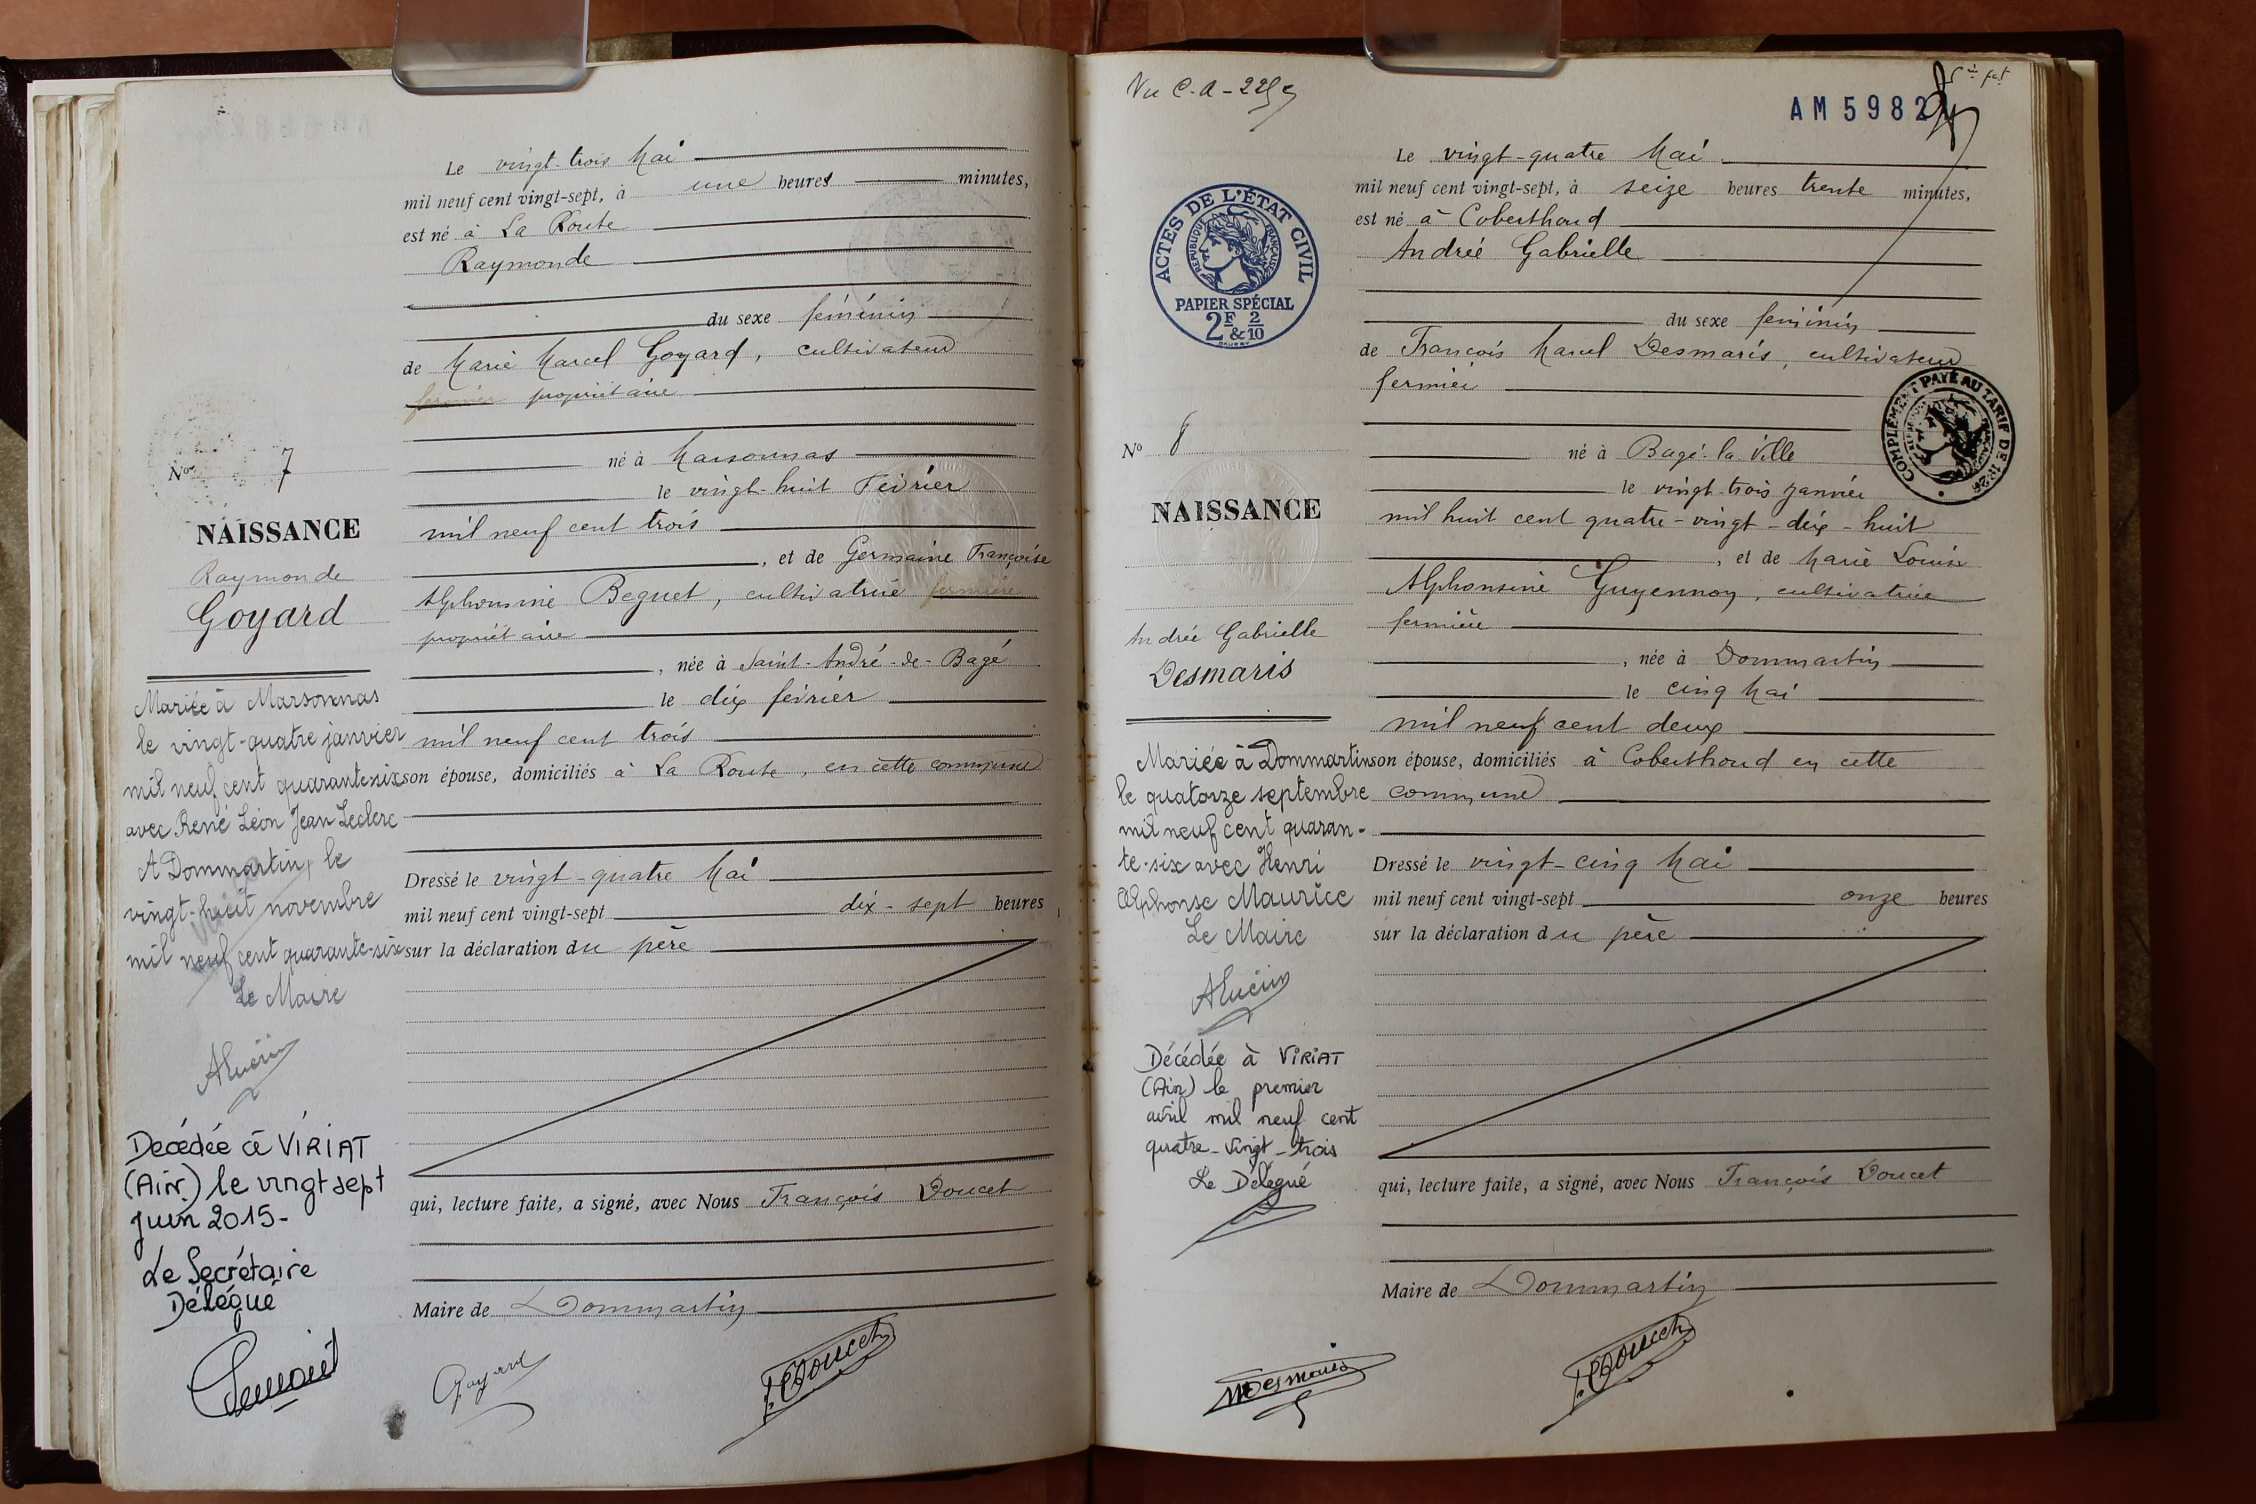 Le vingt-trois Mai
mil neuf cent vingt-sept, à une heures minutes,
est né à La Route
Raymonde
du sexe féminin
de Marie Marcel Goyard, cultivateur
fermier propriétaire
né à Marsonnas
le vingt-huit Février
mil neuf cent trois
, et de Germaine Françoise
Alphonsine Beguet, cultivatrice fermière
propriétaire
, née à Saint-André-de-Bagé
le dix février
mil neuf cent trois
son épouse, domiciliés à La Route, en cette commune
Dressé le vingt-quatre Mai
mil neuf cent vingt-sept dix-sept heures
sur la déclaration du père
qui, lecture faite, a signé, avec Nous François Doucet
Maire de Dommartin
Goyard
F. Doucet
No 7
NAISSANCE
Raymonde
Goyard
Mariée à Marsonnas
le vingt-quatre janvier
mil neuf cent quarante six
avec René Léon Jean Leclerc
A Dommartin, le
vingt-huit novembre
mil neuf cent quarante-six
Le Maire
Décédée à VIRIAT
(Ain) le vingt sept
juin 2015-
Le Secrétaire
Délégué
Vu C.A-
AM 5982
ACTES DE L'ÉTAT CIVIL
RÉPUBLIQUE FRANÇAISE
PAPIER SPÉCIAL
2F & 2/10
Le vingt-quatre Mai
mil neuf cent vingt-sept, à seize heures trente minutes,
est né à Coberthoud
Andrée Gabrielle
du sexe féminin
de François Marcel Desmaris, cultivateur
fermier
COMPLÉMENT PAYÉ AU TARIF DE 1926
né à Bagé-la-Ville
le vingt-trois janvier
mil huit cent quatre-vingt-dix-huit
, et de Marie Louise
Alphonsine Guyennon, cultivatrice
fermière
, née à Dommartin
le cinq Mai
mil neuf cent deux
son épouse, domiciliés à Coberthoud en cette
commune
Dressé le vingt-cinq Mai
mil neuf cent vingt-sept onze heures
sur la déclaration du père
qui, lecture faite, a signé, avec Nous François Doucet
Maire de Dommartin
MDesmaris
F. Doucet
No 8
NAISSANCE
Andrée Gabrielle
Desmaris
Mariée à Dommartin
le quatorze septembre
mil neuf cent quaran-
te-six avec Henri
Alphonse Maurice
Le Maire
Décédée à VIRIAT
(Ain) le premier
avril mil neuf cent
quatre-vingt-trois
Le Délégué